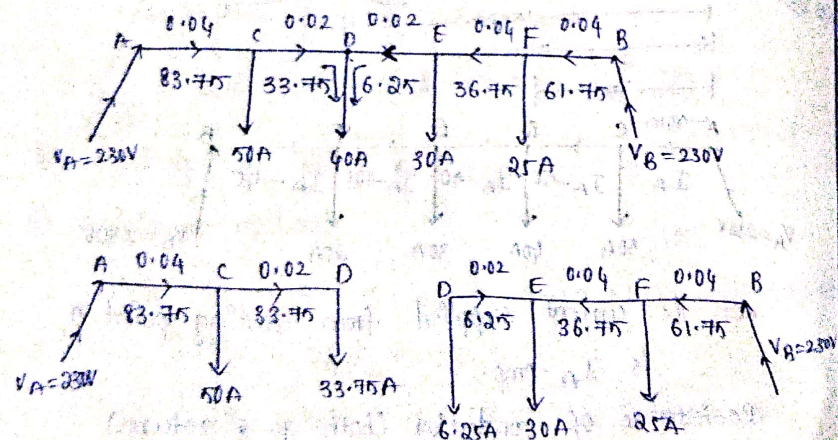 0.04 0.02 0.02 0.04 0.04
A C D E F B
83.75 33.75 6.25 36.75 61.75
VA=230V 50A 40A 30A 25A VB=230V
A 0.04 C 0.02 D
83.75 33.75
VA=230V 50A 33.75A
D 0.02 E 0.04 F 0.04 B
6.25 36.75 61.75
VB=230V
6.25A 30A 25A